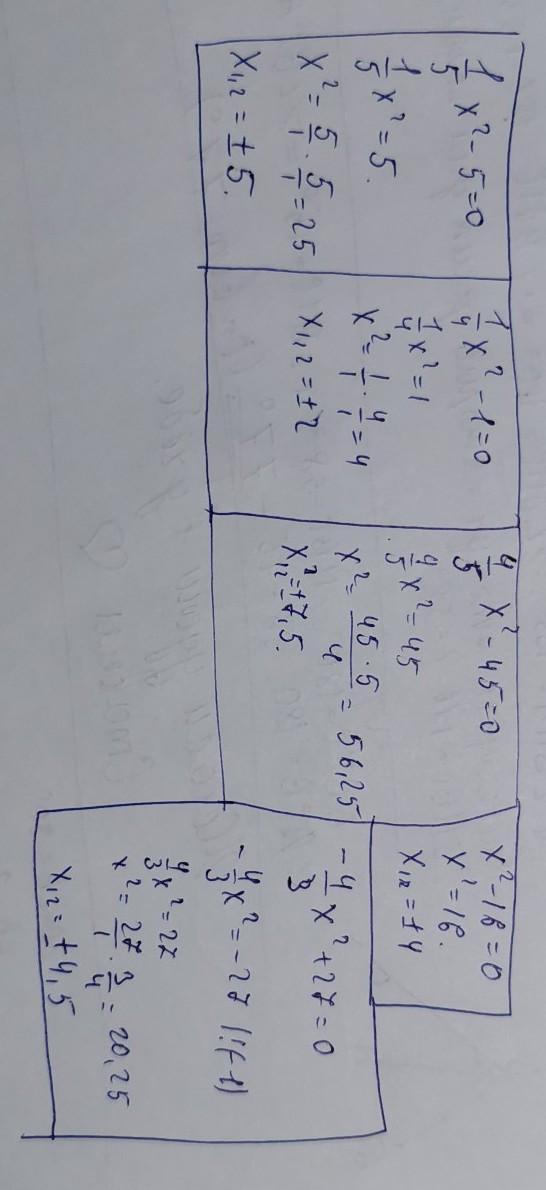 1/5 x² - 5 = 0
1/5 x² = 5.
x² = 5/1 · 5/1 = 25
x₁,₂ = ± 5.
1/4 x² - 1 = 0
1/4 x² = 1
x² = 1/1 · 4/1 = 4
x₁,₂ = ± 2
4/5 x² - 45 = 0
4/5 x² = 45
x² = 45 · 5 / 4 = 56,25
x₁,₂ = ± 7,5.
x² - 16 = 0
x² = 16.
x₁,₂ = ± 4
- 4/3 x² + 27 = 0
- 4/3 x² = - 27 |:(-1)
4/3 x² = 27
x² = 27/1 · 3/4 = 20,25
x₁,₂ = ± 4,5